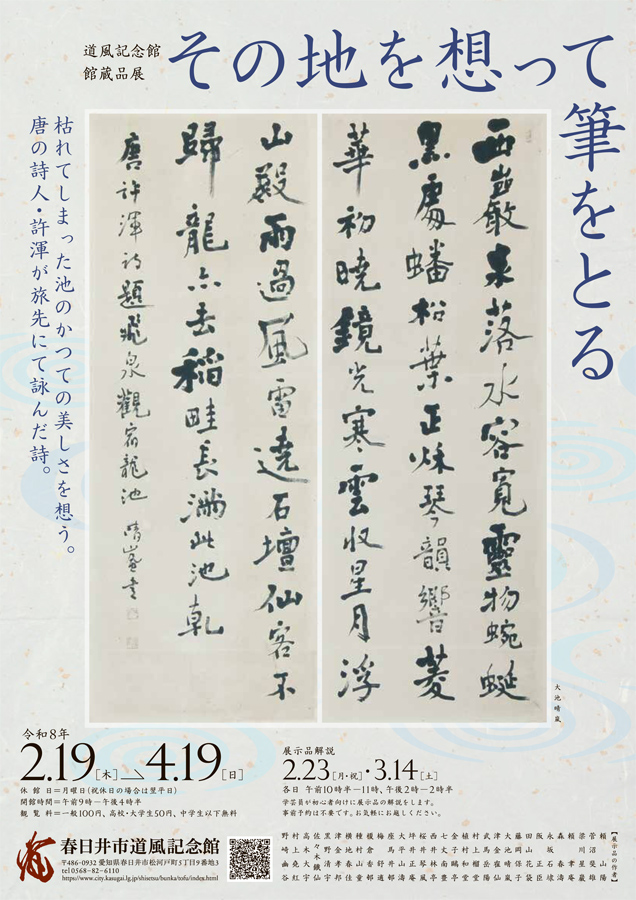 道風記念館
館蔵品展
その地を想って
筆をとる
枯れてしまった池のかつての美しさを想う。
唐の詩人・許渾が旅先にて詠んだ詩。
西巖泉落水容寬靈物蜿蜒
黒處蟠松葉正秌琴韻響菱
華初曉鏡光寒雲收星月浮
山殿雨過風雷遶石壇仙客不
歸龍亦去稻畦長滿此池乾
唐許渾詩題飛泉觀宿龍池
大池晴嵐
令和8年
2.19[木]→4.19[日]
休館日=月曜日(祝休日の場合は翌平日)
開館時間=午前9時〜午後4時半
観覧料=一般100円、高校・大学生50円、中学生以下無料
展示品解説
2.23[月・祝]・3.14[土]
各日 午前10時半−11時、午後2時−2時半
学芸員が初心者向けに展示品の解説をします。
事前予約は不要です。お気軽にお越しください。
春日井市道風記念館
〒486-0932 愛知県春日井市松河戸町5丁目9番地3
tel 0568-82-6110
https://www.city.kasugai.lg.jp/shisetsu/bunka/tofu/index.html
【展示品の作者】
頼山陽
梁川星巌